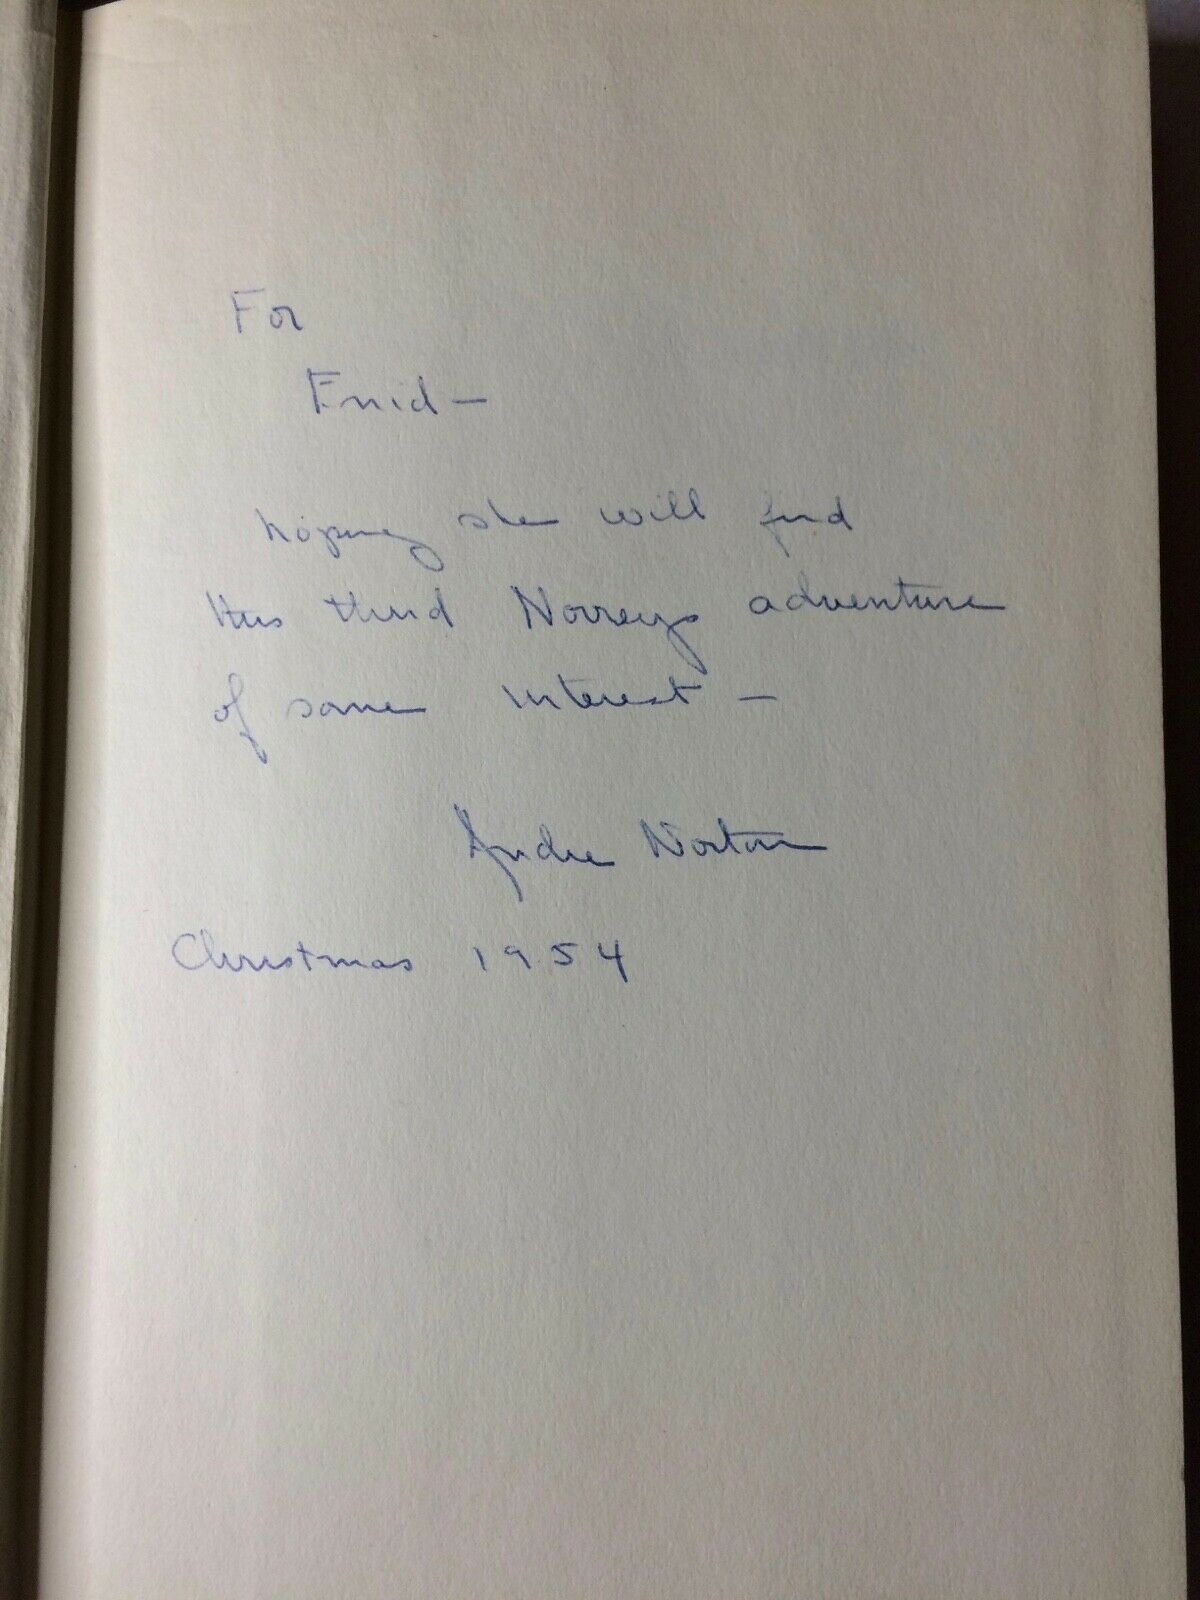 For
Enid —
hoping she will find
this third Norreys adventure
of some interest —
Andre Norton
Christmas 1954